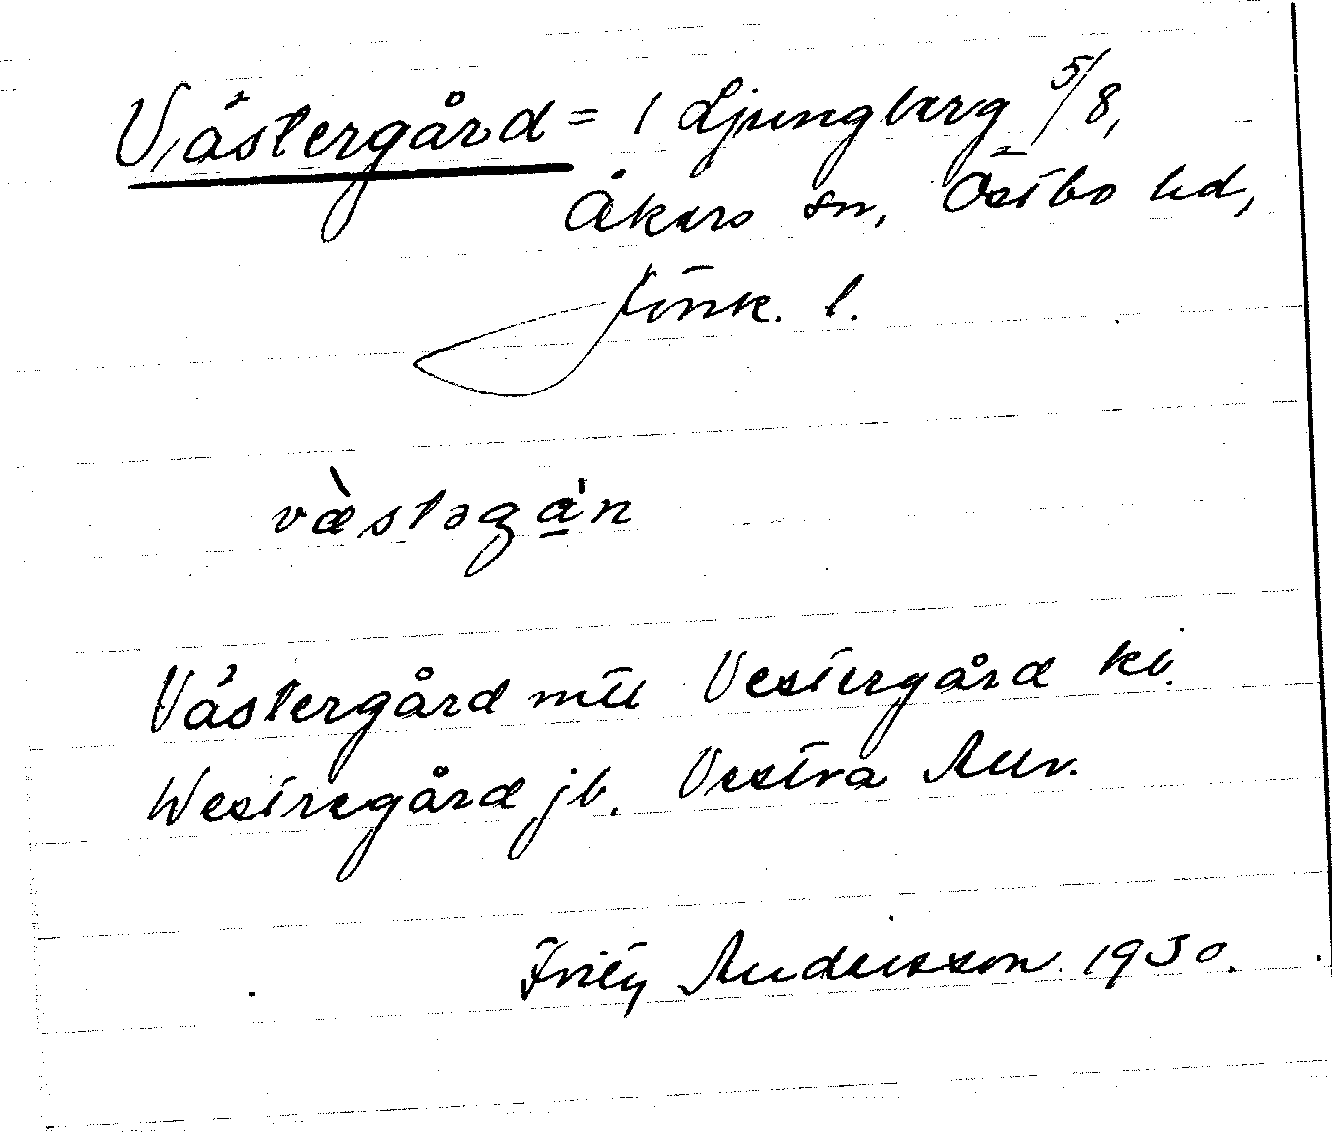 Västergård = 1 Ljungberg 5/8,
Åkers sn, Östbo hd,
Jönk. l.
vӕ̀stəgа̀n
Västergård mtl Vestergård kb.
Westregård jb. Vestra
Fritz Andersson 1930.